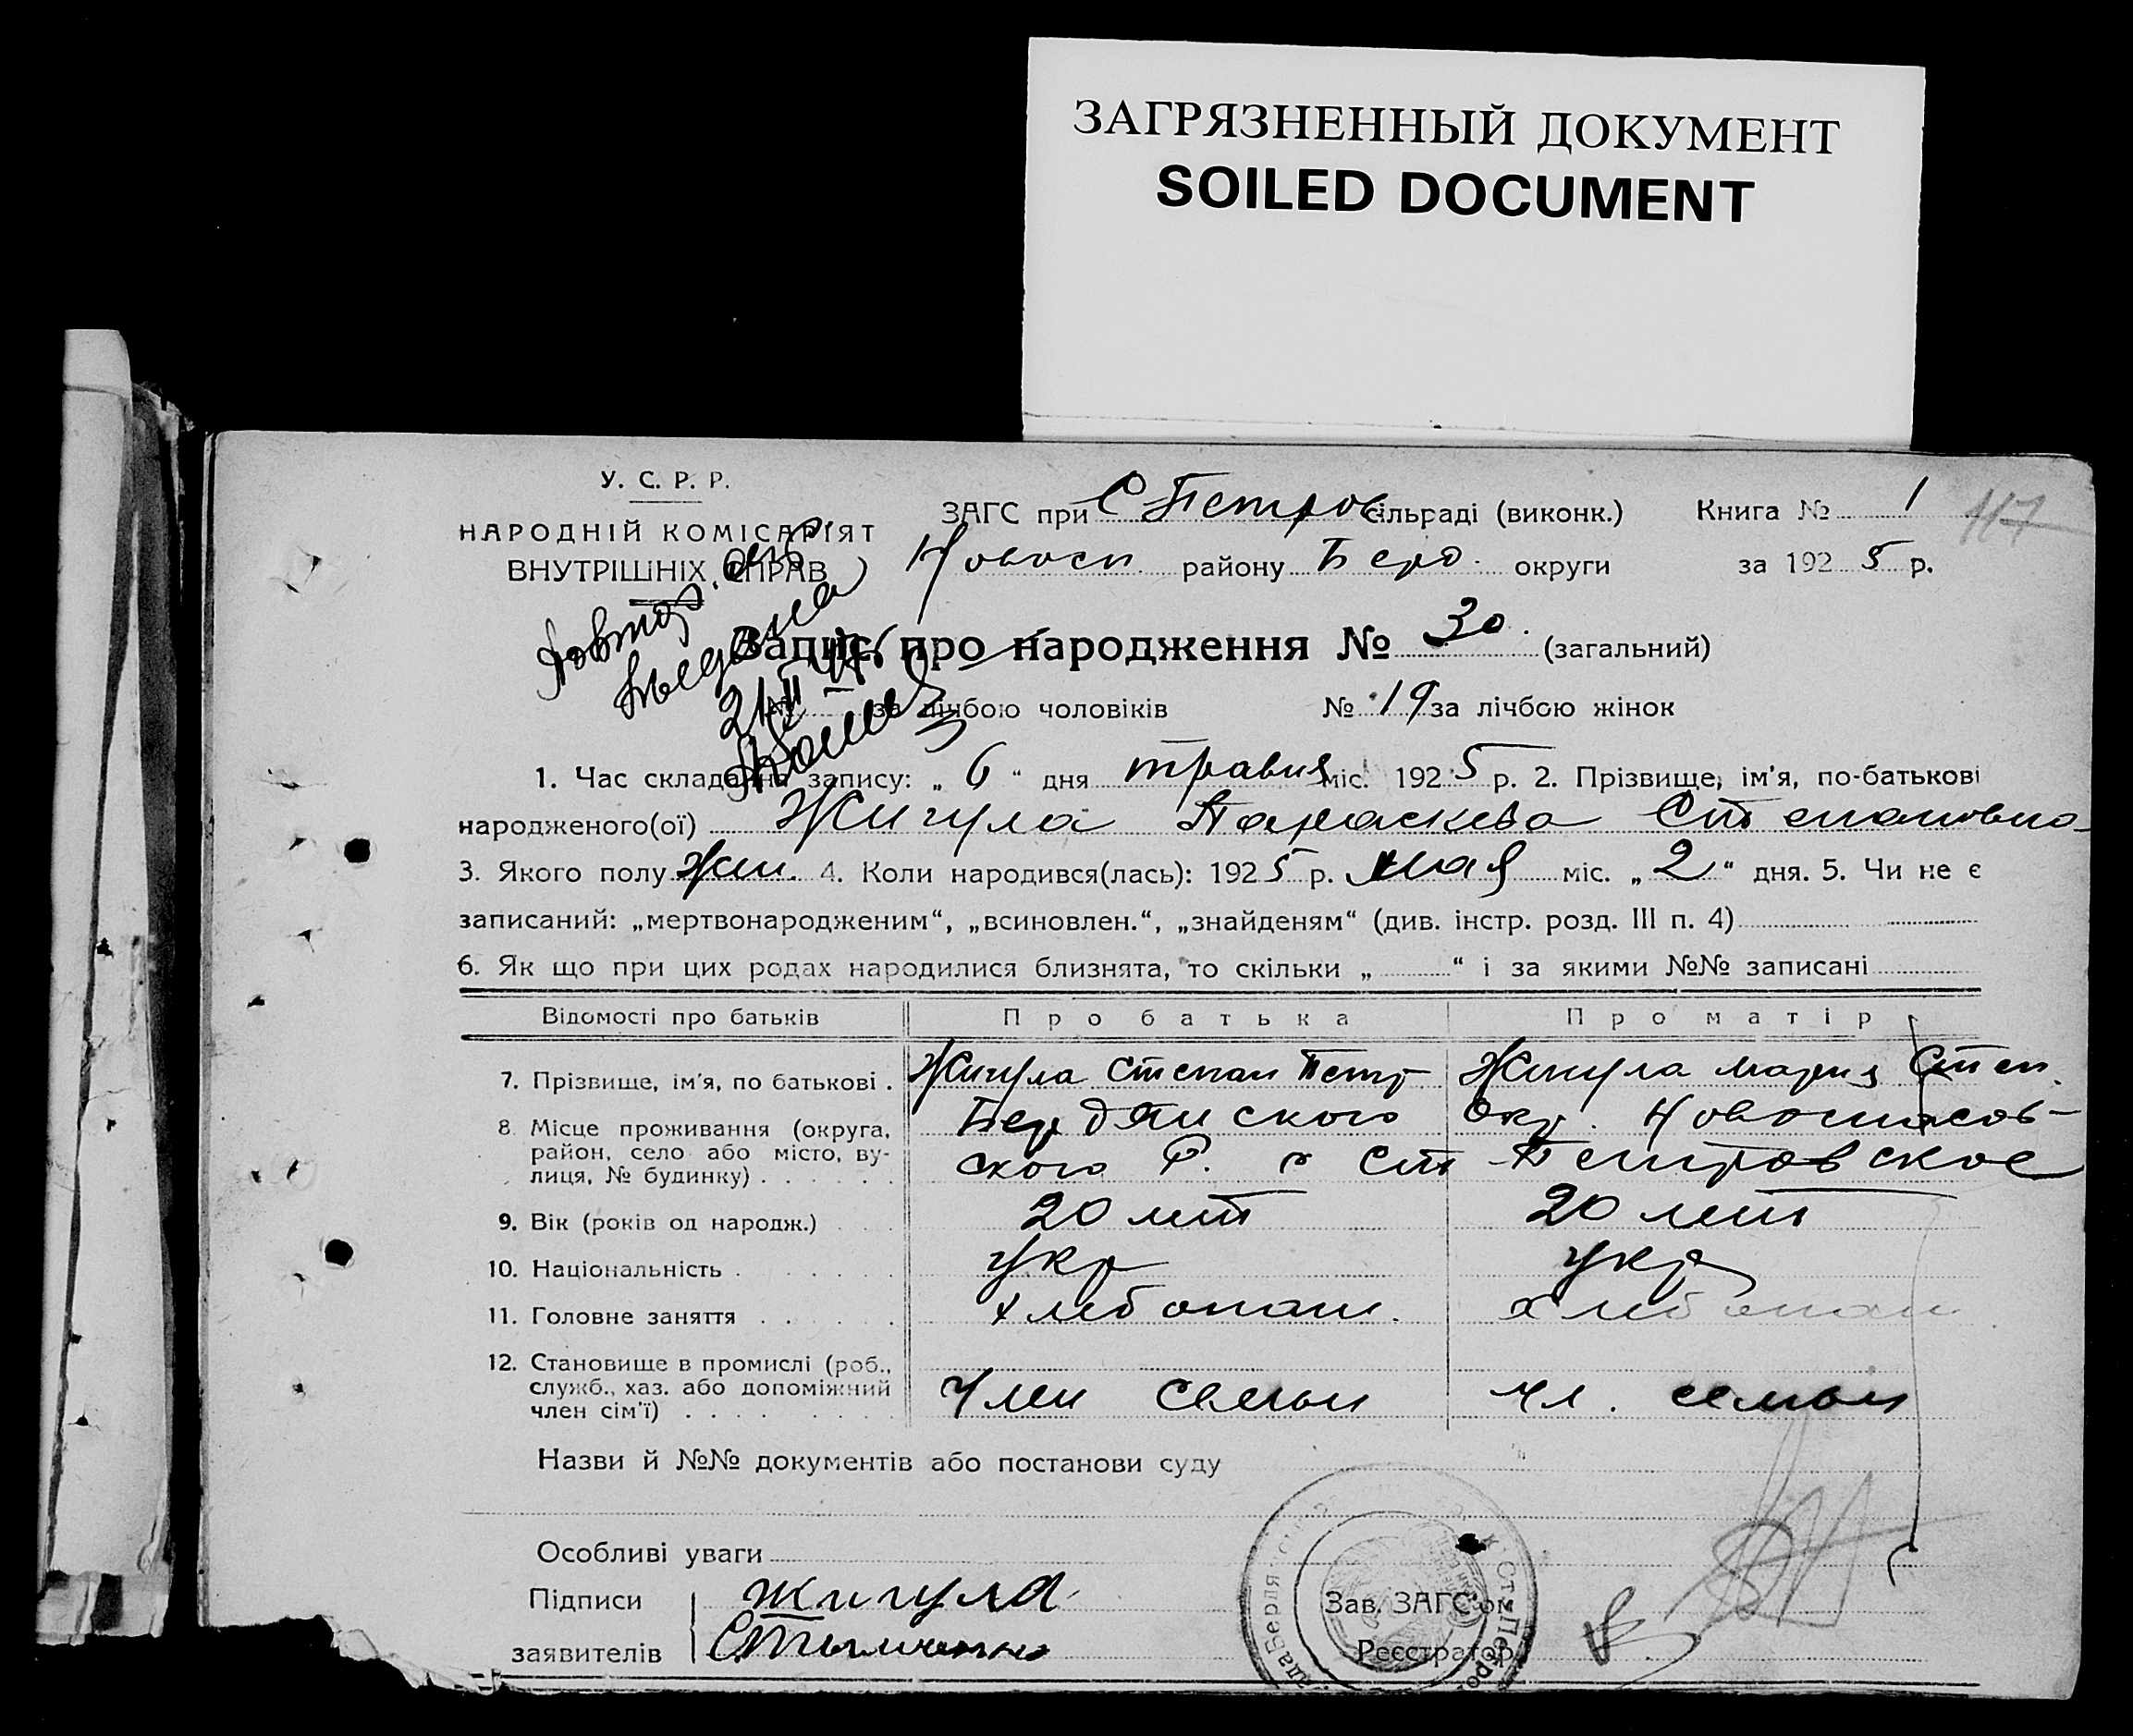 ЗАГРЯЗНЕННЫЙ ДОКУМЕНТ
SOILED DOCUMENT
У. С. Р. Р.
НАРОДНІЙ КОМІСАРІЯТ
ВНУТРІШНІХ СПРАВ
ЗАГС при С Петров сільраді (виконк.) Книга № 1
117
Новосп. району Берд. округи за 1925 р.
Повтор.
выдана
Запис про народження № 30. (загальний)
за лічбою чоловіків № 19 за лічбою жінок
1. Час складання запису: „ 6 “ дня травня міс. 1925 р. 2. Прізвище, ім'я, по-батькові
народженого(ої) Жигула Параскева Степановна
3. Якого полу жин. 4. Коли народився(лась): 1925 р. мая міс. „ 2 “ дня. 5. Чи не є
записаний: „мертвонародженим“, „всиновлен.“, „знайденям“ (див. інстр. розд. III п. 4)
6. Як що при цих родах народилися близнята, то скільки „ “ і за якими №№ записані
Відомості про батьків Про батька Про матір
7. Прізвище, ім'я, по батькові . Жигула Степан Петр Жигула Мария Степ.
8. Місце проживання (округа, район, село або місто, вулиця, № будинку) . . . . . . Бердянского Окр. Новоспасов-
ского Р. с Ст Петровское
9. Вік (років од народж.) 20 лет 20 лет
10. Національність . . . . . . укр укр
11. Головне заняття . . . . . хлебопаш. хлебопаш
12. Становище в промислі (роб., служб., хаз. або допоміжний член сім'ї) . . . . . . . . член семьи чл. семьи
Назви й №№ документів або постанови суду
Особливі уваги
Підписи
заявителів
Жигула
Зав. ЗАГС'ом
Реєстратор